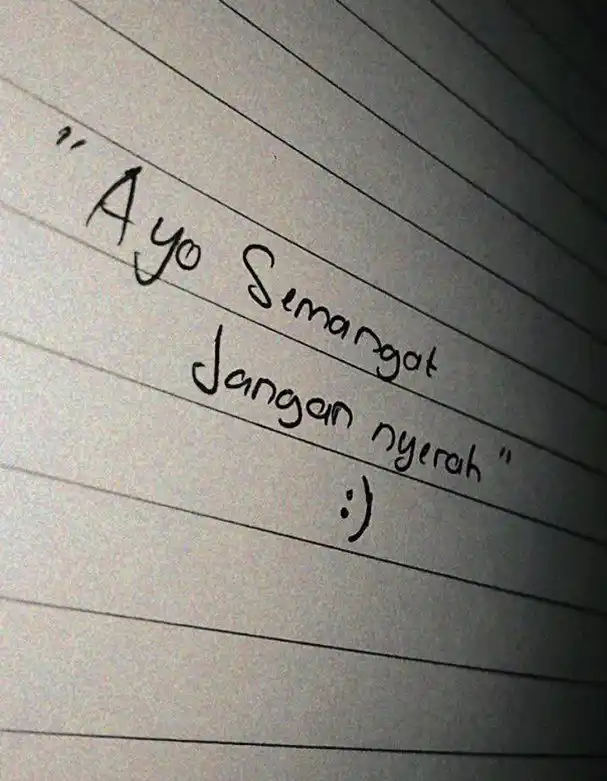 "Ayo Semangat
Jangan nyerah"
:)